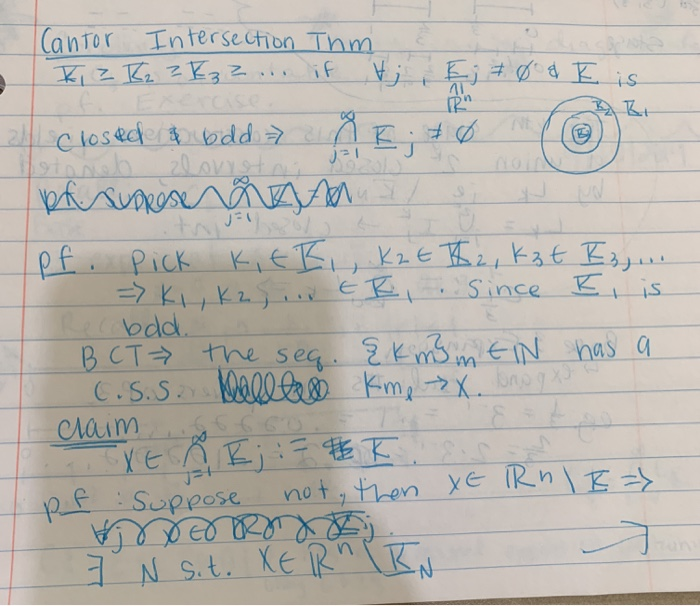 Cantor Intersection Thm
K₁ ≥ K₂ ≥ K₃ ≥ ... if ∀j, Kj ≠ ∅ & K is
∩| ℝⁿ
K₂ K₁
K₃
closed & bdd ⇒ ∞⋂j=1 Kj ≠ ∅
pf. Pick k₁ ∈ K₁, k₂ ∈ K₂, k₃ ∈ K₃, ...
⇒ k₁, k₂, ... ∈ K₁. Since K₁ is
bdd.
BCT ⇒ the seq. {km}m ∈ ℕ has a
C.S.S. kmₗ → x.
claim
x ∈ ∞⋂j=1 Kj := K.
pf : Suppose not, then x ∈ ℝn \ K ⇒
∃ N s.t. x ∈ ℝⁿ \ K_N